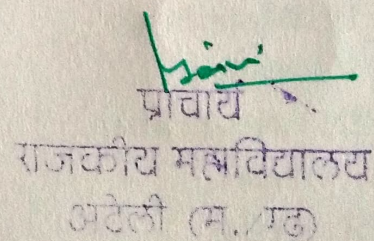 प्राचार्य
राजकीय महाविद्यालय
अटेली (म.